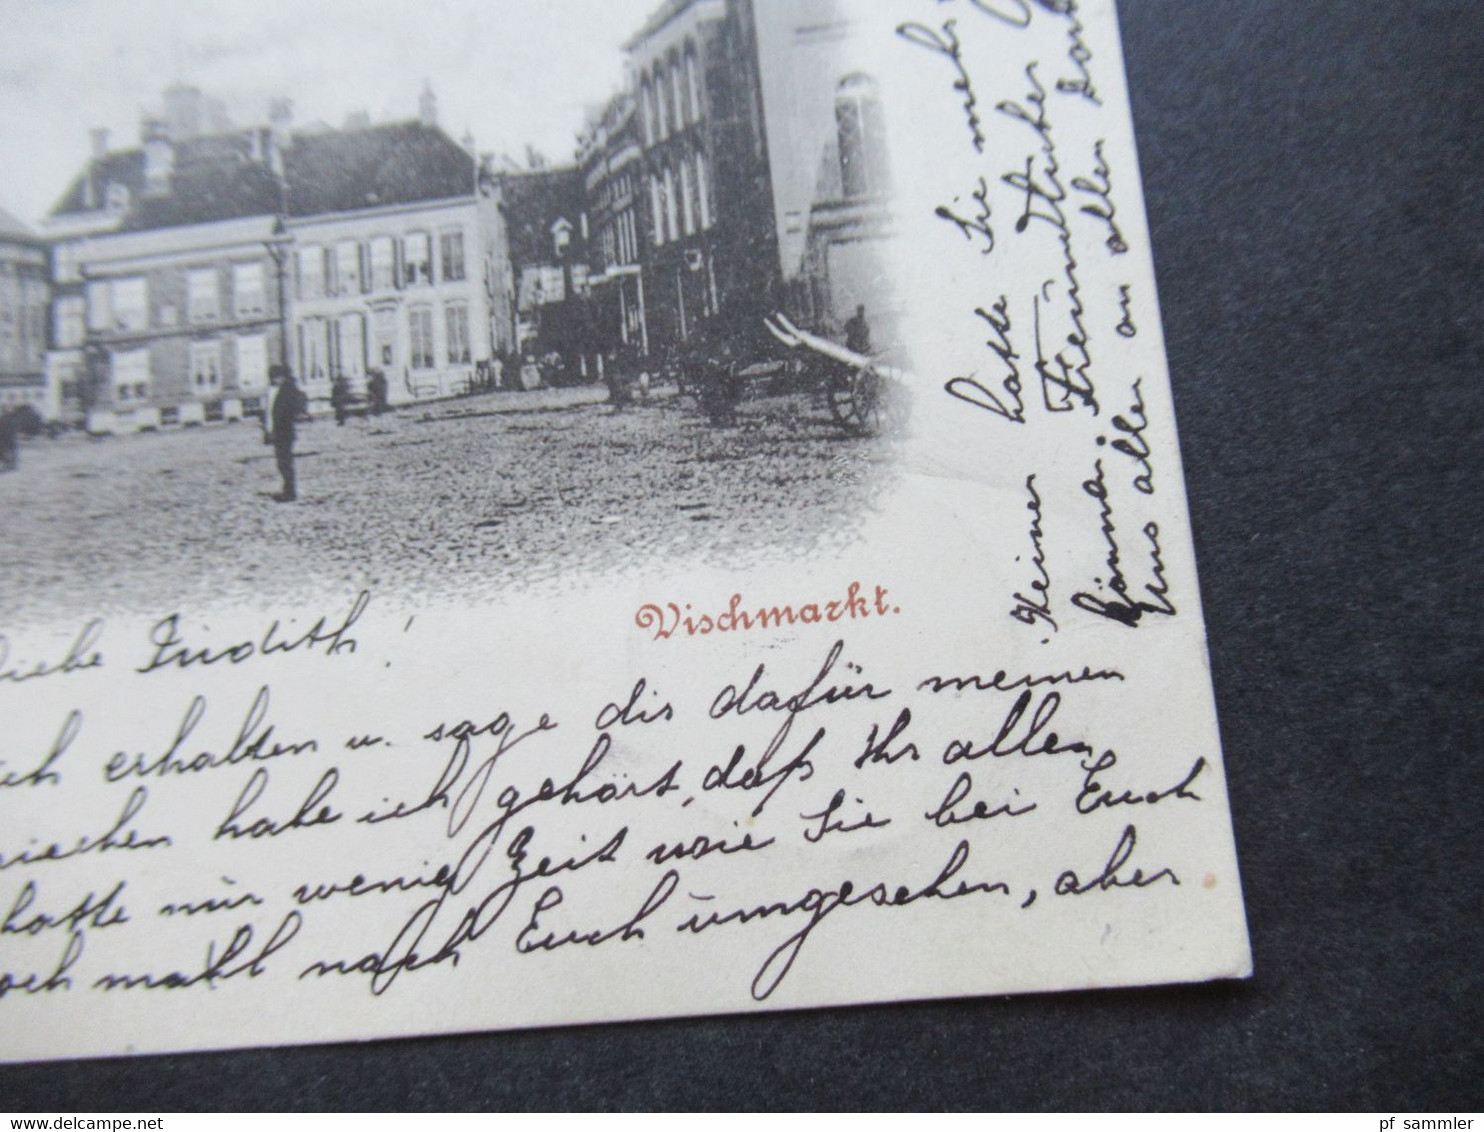 Vischmarkt.
Liebe Judith!
ich erhalten u. sage dir dafür meinen
habe ich gehört, daß Ihr allen
hatte nur wenig Zeit wie Sie bei Euch
noch mahl nach Euch umgesehen, aber
Keiner hatte Sie mehr
können
Uns allen an allen
delcampe.net
pf_sammler